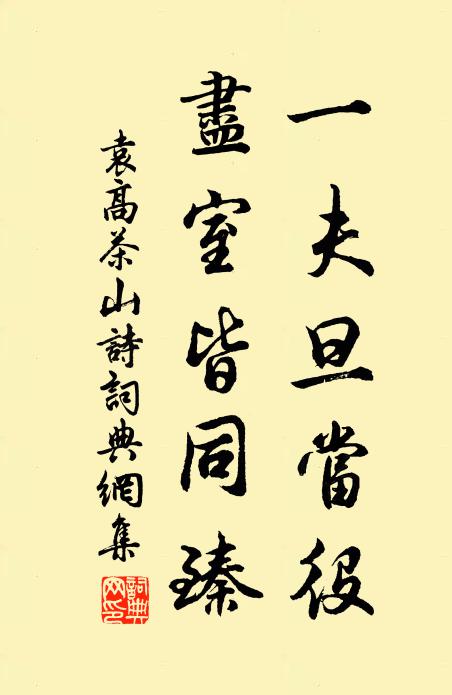 一夫旦當役
盡室皆同臻
袁高茶山詩詞典網集
詞典網印